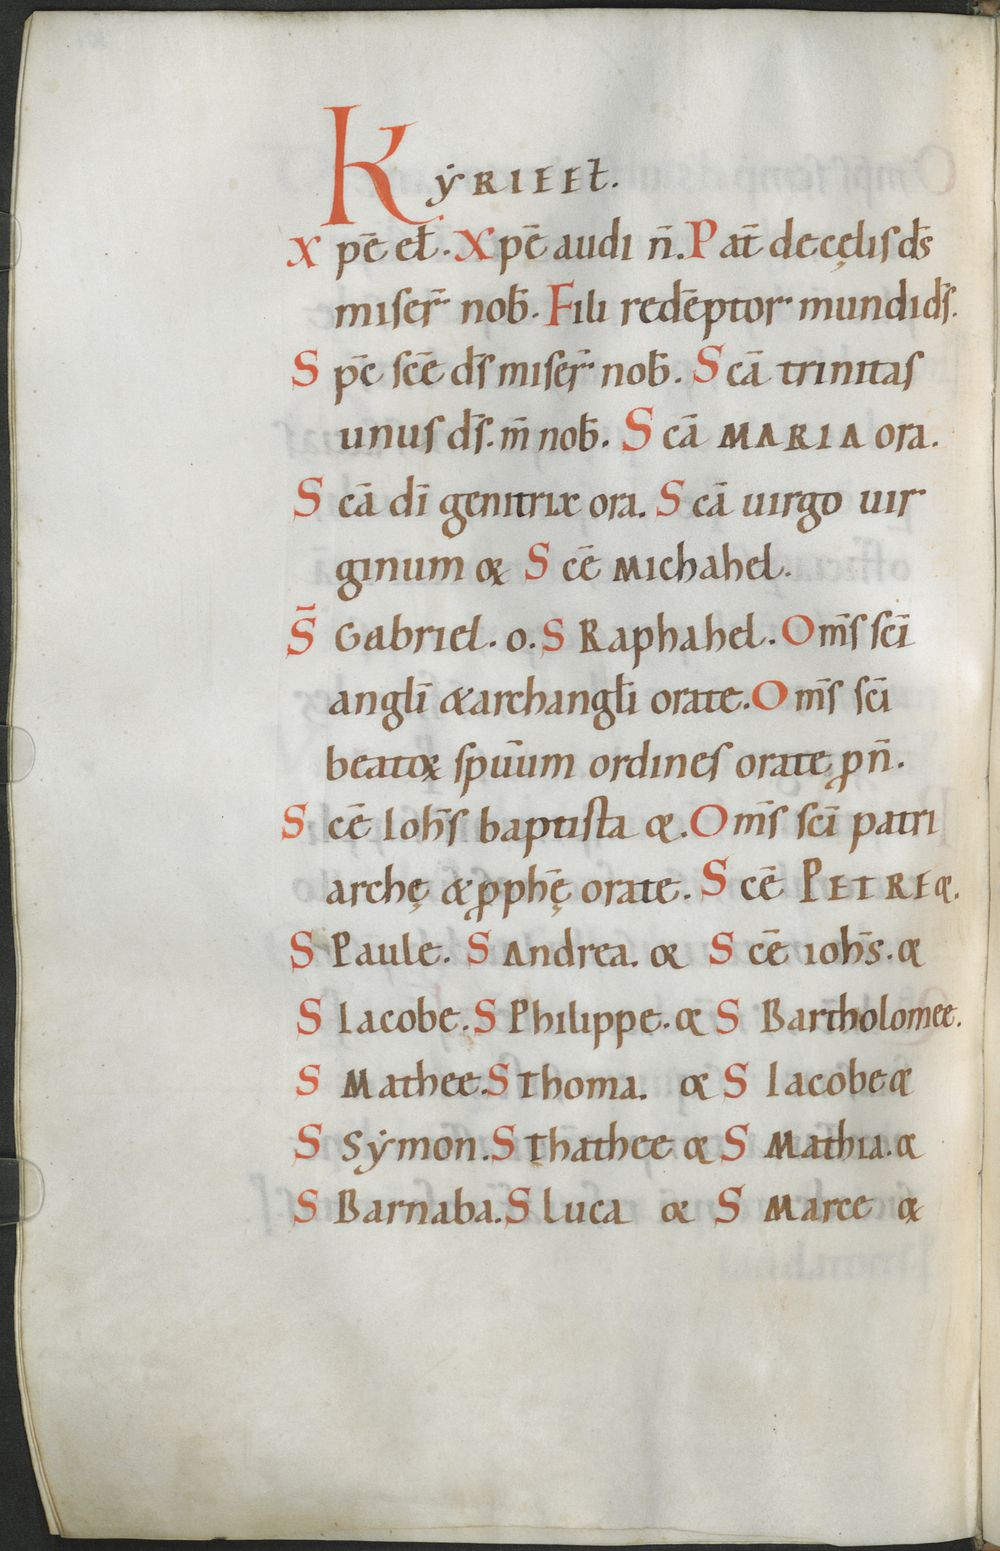 KẏRIE Eł.
Xpē eł. Xpē audi n̄. Pat̄ de cęlis d̄s
miser̄ nob̄. Fili redēptor mundi d̄s.
Spc̄ sc̄e d̄s miser̄ nob̄. Scā trinitas
unus d̄s. m̄ nob̄. Scā MARIA ora.
Scā dī genitrix ora. Scā uirgo uir
ginum oꝝ Scē Michahel.
S̄ Gabriel. o. S Raphahel. Om̄s scī
anglī & archanglī orate. Om̄s scī
beatoꝝ spūum ordines orate ꝓ n̄.
Scē Ioh̄s baptista oꝝ. Om̄s scī patri
archę & ꝓph̄ę orate. Scē PETRE oꝝ.
S Paule. S Andrea. oꝝ Scē ioh̄s. oꝝ
S Iacobe. S Philippe. oꝝ S Bartholomee.
S Mathee. S Thoma. oꝝ S Iacobe oꝝ
S Sẏmon. S Thathee oꝝ S Mathia. oꝝ
S Barnaba. S luca oꝝ S Marce oꝝ